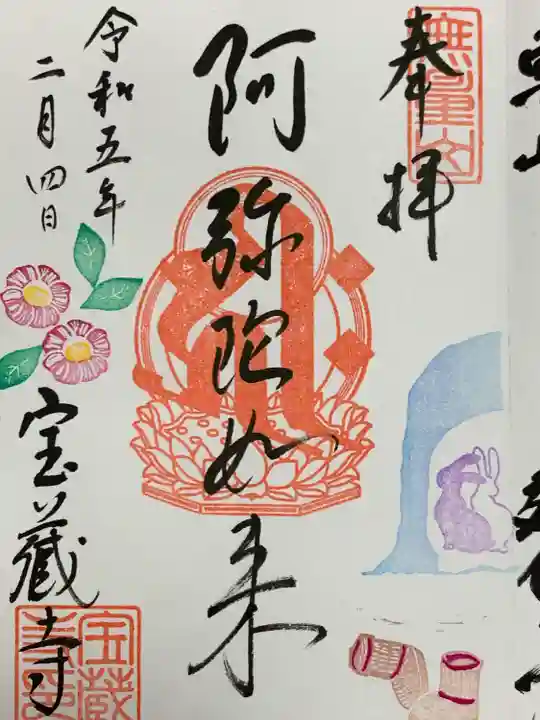 奉拝
無量山
阿弥陀如来
令和五年
二月四日
宝蔵寺
宝蔵寺印